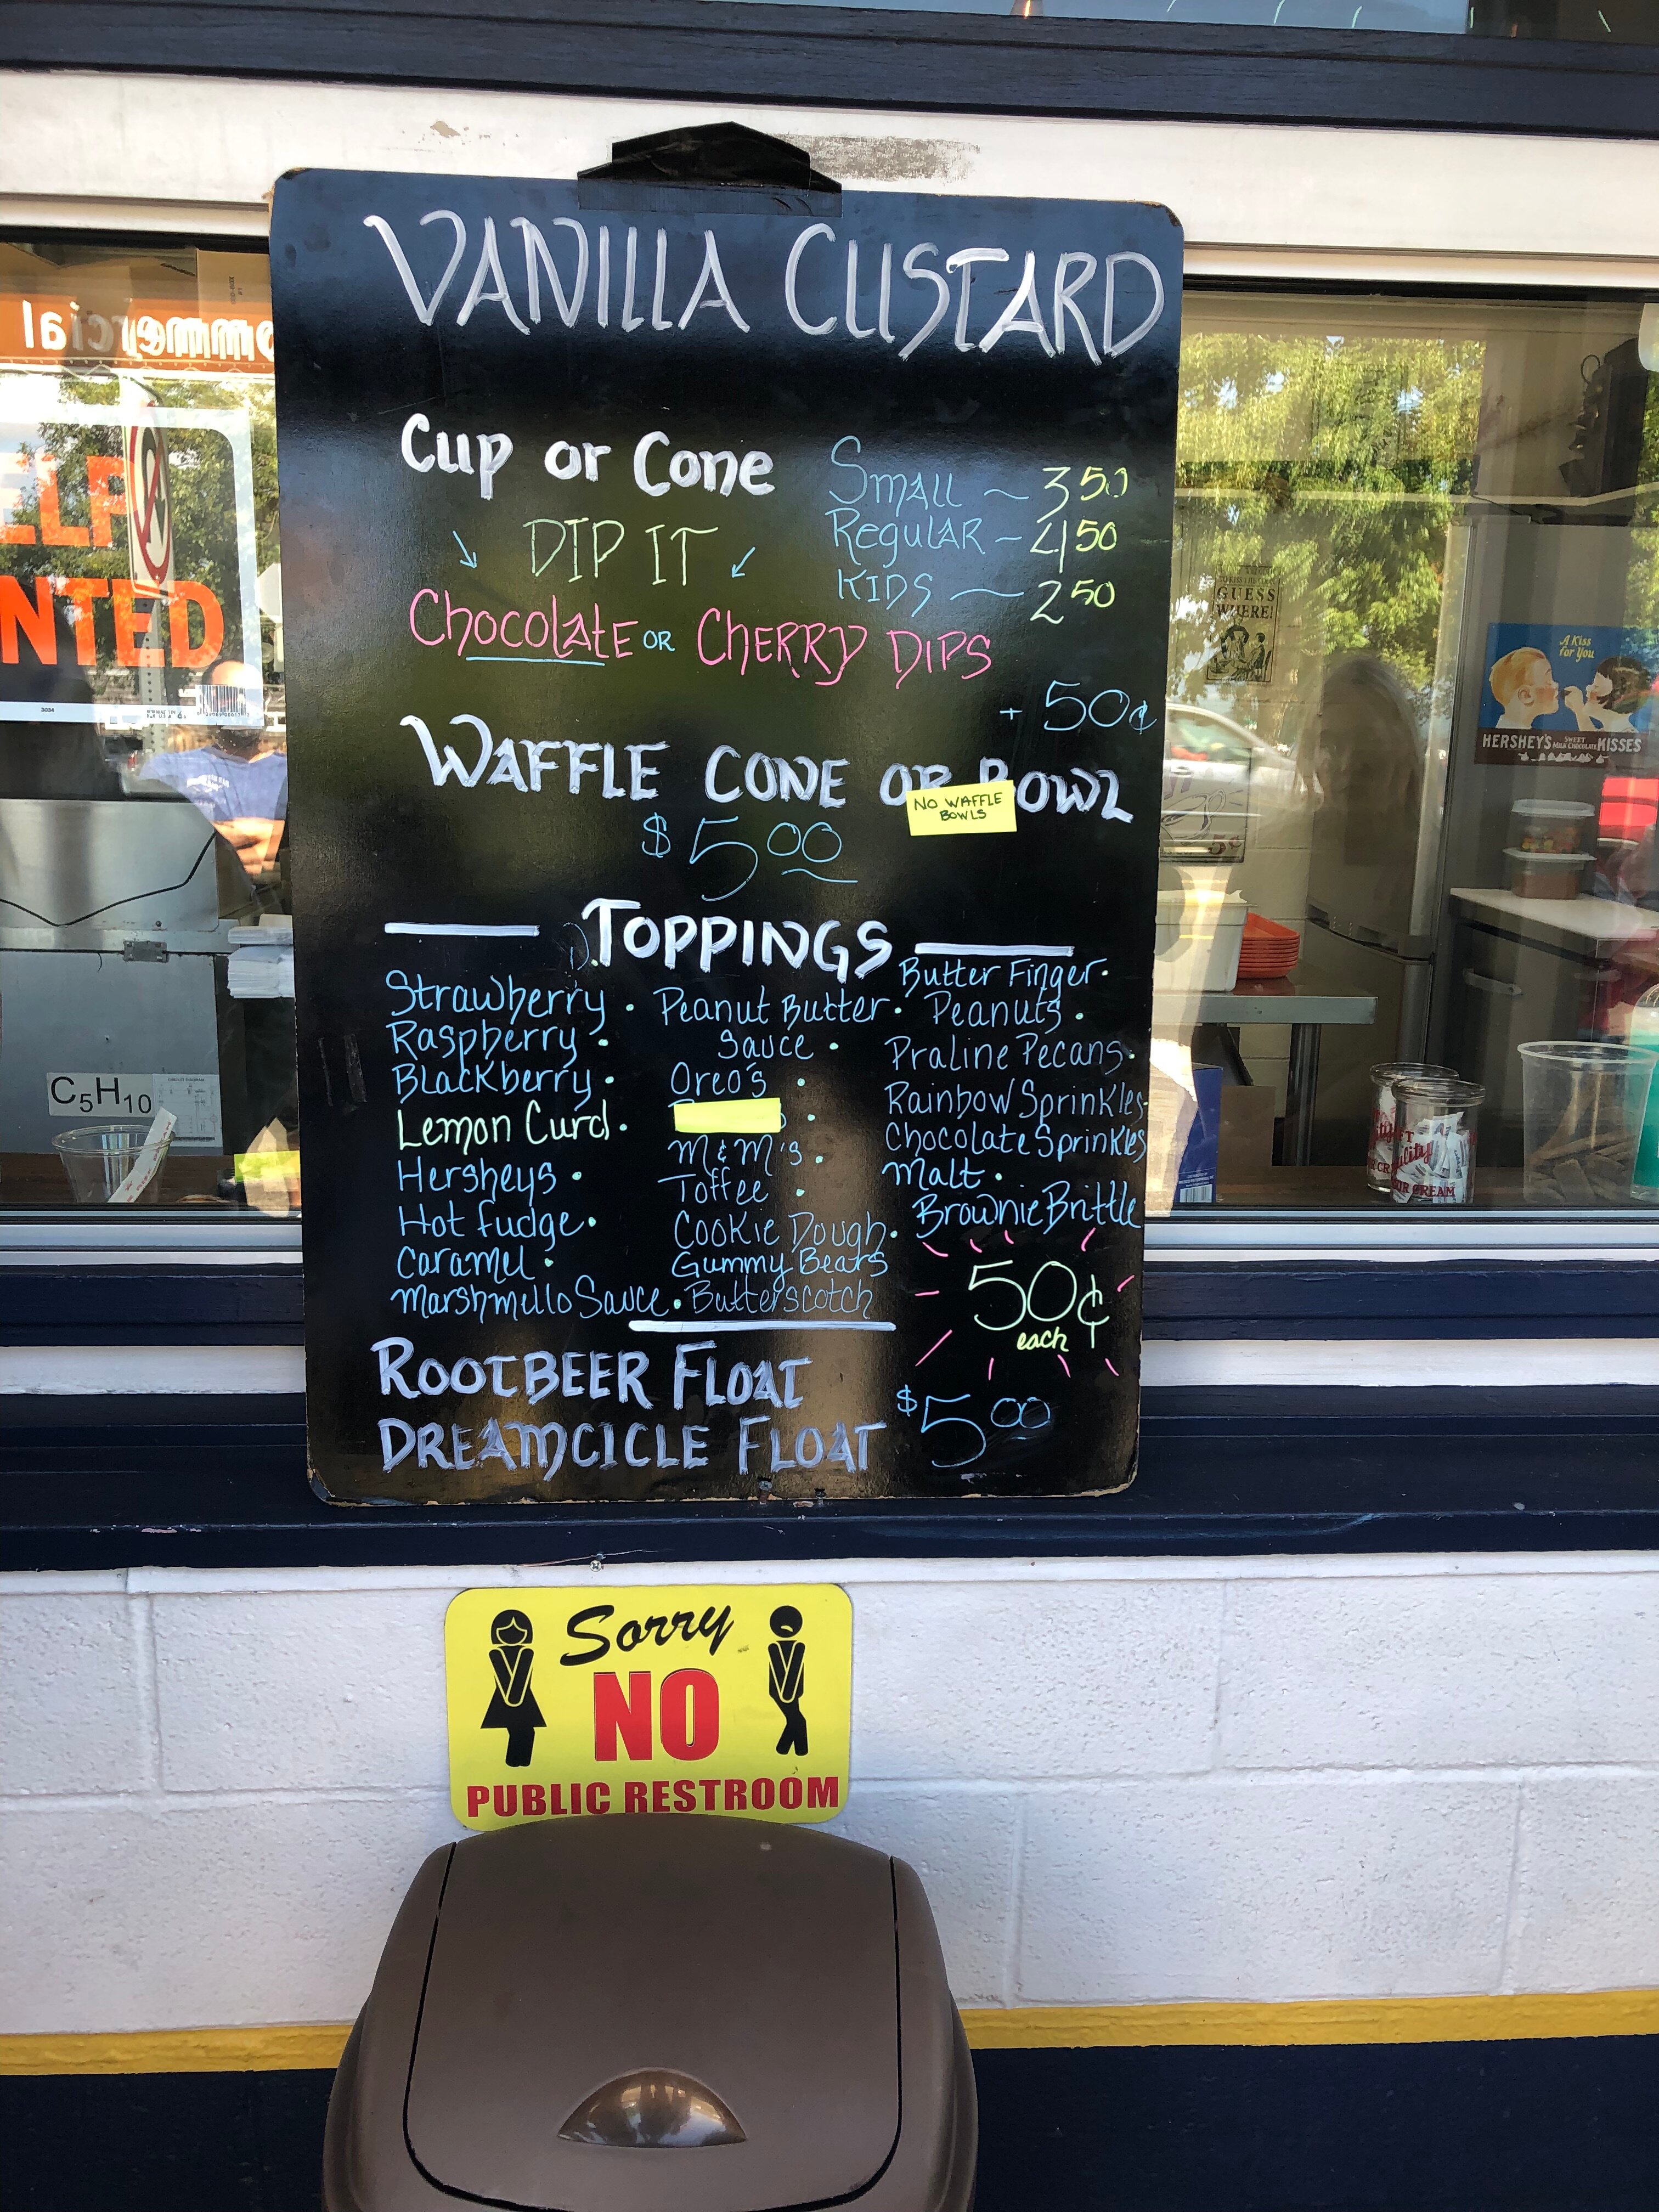 VANILLA CUSTARD
Cup or Cone
Small ~ 3 50
Regular - 4 50
KIDS — 2 50
DIP IT
Chocolate or Cherry Dips
+ 50¢
Waffle Cone or Bowl
NO WAFFLE
BOWLS
$5 00
Toppings
Strawberry •
Raspberry •
Blackberry •
Lemon Curd •
Hersheys •
Hot fudge •
Caramel •
Marshmello Sauce •
Peanut Butter •
Sauce •
Oreo's •
M&M's •
Toffee •
Cookie Dough •
Gummy Bears
Butterscotch
Butter Finger •
Peanuts •
Praline Pecans •
Rainbow Sprinkles •
Chocolate Sprinkles
Malt •
Brownie Brittle
50¢
each
Rootbeer Float
Dreamcicle Float
$5 00
Sorry
NO
PUBLIC RESTROOM
ommercial
ELP
NTED
3034
C5H10
GUESS
WHERE!
A Kiss
for You
HERSHEY'S SWEET MILK CHOCOLATE KISSES